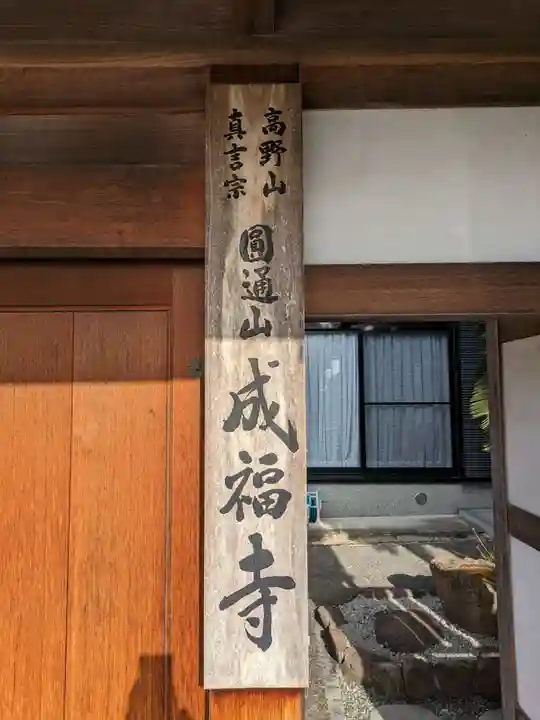 高野山
真言宗
圓通山成福寺